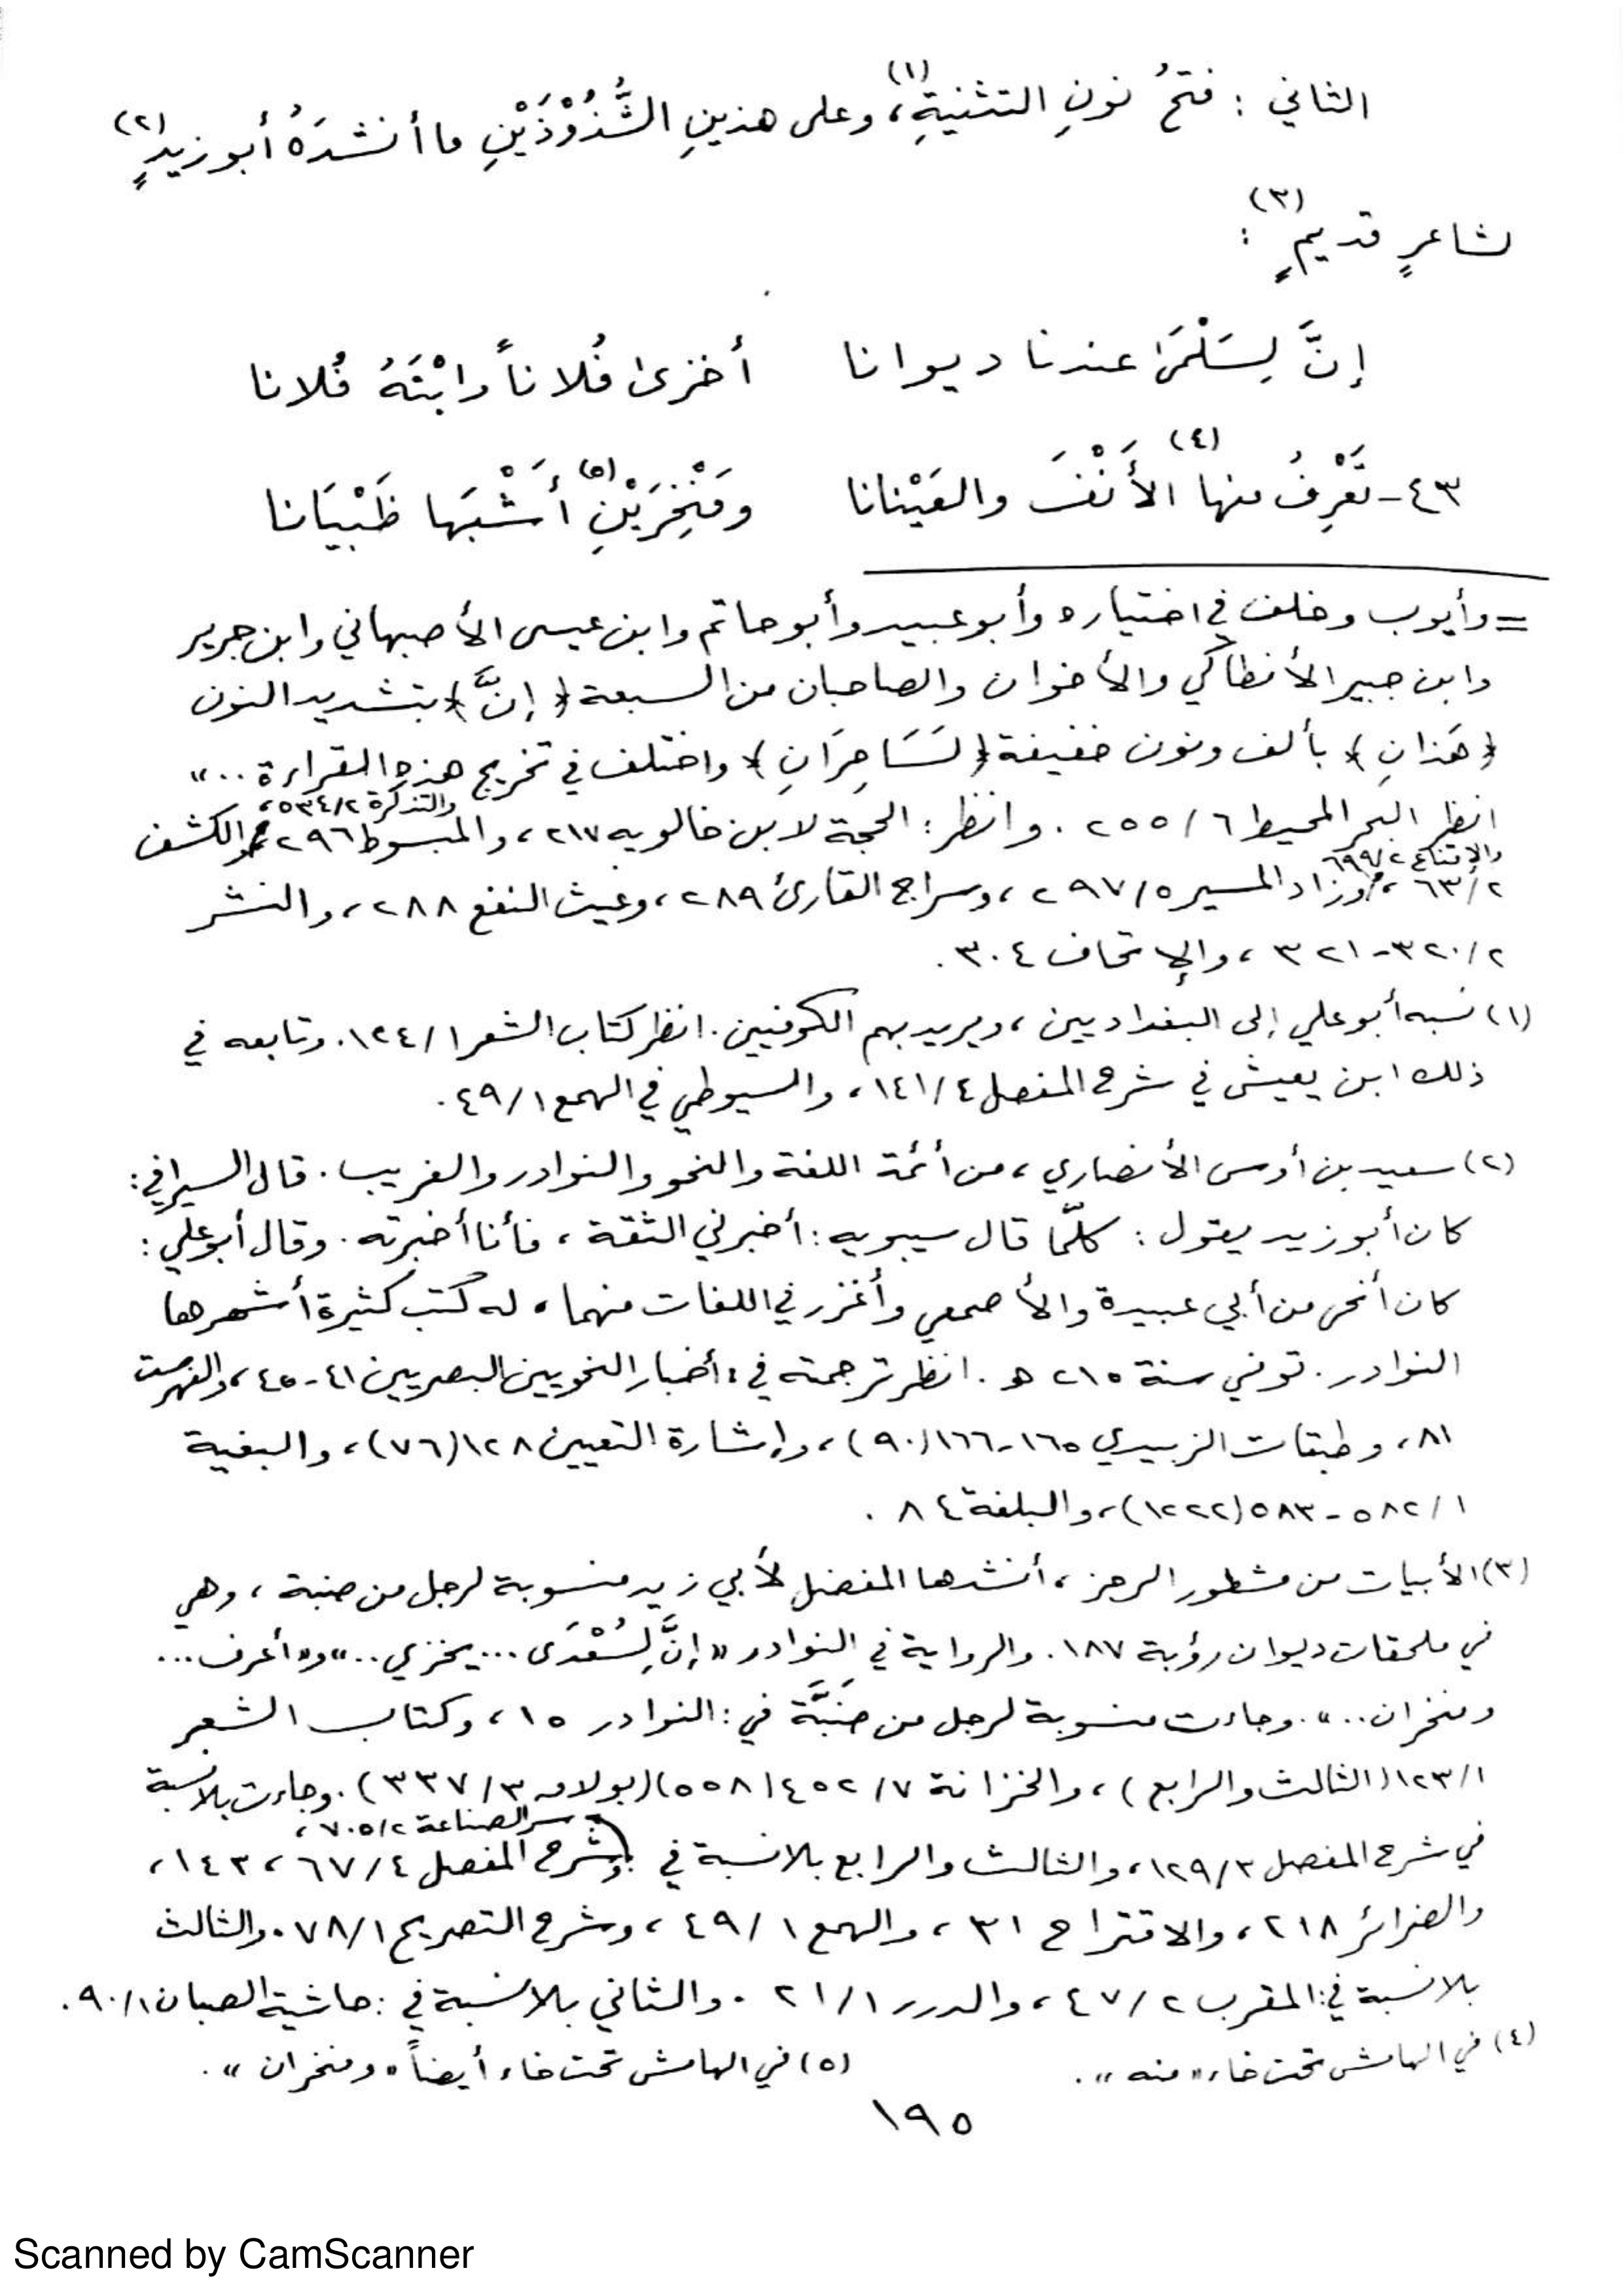 الثاني : فتحُ نونِ التثنيةِ(١)، وعلى هذينِ الشُّذُوْذَيْنِ ما أنشدَهُ أبو زيدٍ(٢)
لشاعرٍ قديمٍ(٣) :
إنَّ لِسَلْمَىٰ عندنا ديوانا أخزىٰ فُلاناً وابْنَهُ فُلانا
٤٣- تَعْرِفُ منها(٤) الأَنْفَ والعَيْنانا ومَنْخِرَيْنِ(٥) أَشْبَها ظَبْيَانا
= وأيوب وخلف في اختياره وأبو عبيد وأبو حاتم وابن عيسى الأصبهاني وابن جرير
وابن جبير الأنطاكي والأخوان والصاحبان من السبعة ﴿ إنَّ ﴾ بتشديد النون
﴿ هَذانِ ﴾ بألف ونون خفيفة ﴿ لَسَاحِرَانِ ﴾ واختلف في تخريج هذه القراءة ... »
والتذكرة ٥٣٤/٢،
انظر البحر المحيط ٢٥٥/٦ . وانظر : الحجة لابن خالويه ٢١٧ ، والمبسوط ٢٩٦ والكشف
والإقناع ٦٩٩/٢
٦٣/٢ ، وزاد المسير ٢٩٧/٥ ، وسراج القارئ ٢٨٩ ، وغيث النفع ٢٨٨ ، والنشر
٣٢٠/٢-٣٢١ ، والإتحاف ٣٠٤ .
(١) نسبه أبو علي إلى البغداديين ، ويريد بهم الكوفيين . انظر كتاب الشعر ١٢٤/١ . وتابعه في
ذلك ابن يعيش في شرح المفصل ١٤١/٤ ، والسيوطي في الهمع ٤٩/١ .
(٢) سعيد بن أوس الأنصاري ، من أئمة اللغة والنحو والنوادر والغريب . قال السيرافي :
كان أبو زيد يقول : كلّما قال سيبويه : أخبرني الثقة ، فأنا أخبرته . وقال أبو علي :
كان أنحى من أبي عبيدة والأصمعي وأغزر في اللغات منهما . له كتب كثيرة أشهرها
النوادر . توفي سنة ٢١٥ هـ . انظر ترجمته في : أخبار النحويين البصريين ٤١-٤٥ ، والفهرست
٨١ ، وطبقات الزبيدي ١٦٥-١٦٦ (٩٠) ، وإشارة التعيين ١٢٨ (٧٦) ، والبغية
٥٨٢/١-٥٨٣ (١٢٢٢) ، والبلغة ٨٤ .
(٣) الأبيات من مشطور الرجز ، أنشدها المفضل لأبي زيد منسوبة لرجل من ضبة ، وهي
في ملحقات ديوان رؤبة ١٨٧ . والرواية في النوادر « إنَّ لِسُعْدَى ... يخزي .. » و« أعرف ...
ومنخران .. » . وجاءت منسوبة لرجل من ضَبَّة في : النوادر ١٥ ، وكتاب الشعر
١٢٣/١ (الثالث والرابع) ، والخزانة ٤٥٢/٧ (٥٥٨) (بولاق ٣٣٧/٣) . وجاءت بلا نسبة
سر الصناعة ٧٠٥/٢ ،
في شرح المفصل ١٢٩/٣ ، والثالث والرابع بلا نسبة في : وشرح المفصل ٦٧/٤ ، ١٤٣ ،
والضرائر ٢١٨ ، والاقتراح ٣١ ، والهمع ٤٩/١ ، وشرح التصريح ٧٨/١ . والثالث
بلا نسبة في : المقرب ٤٧/٢ ، والدرر ٢١/١ . والثاني بلا نسبة في : حاشية الصبان ٩٠/١ .
(٤) في الهامش تحت خاء « منه » . (٥) في الهامش تحت خاء أيضاً « ومنخران » .
١٩٥
Scanned by CamScanner